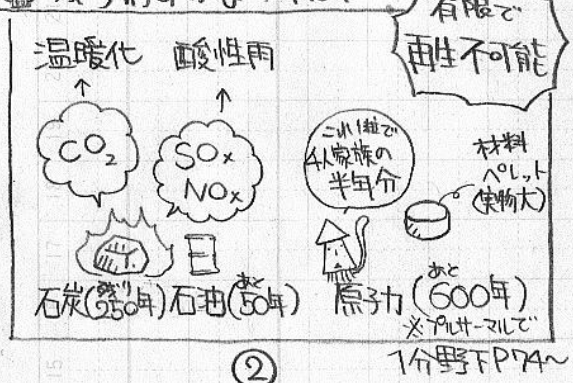 有限で
再生不可能
温暖化 酸性雨
↑ ↑
CO₂
SOx
NOx
これ1粒で
4人家族の
半年分
材料
ペレット
(実物大)
石炭(残り250年) 石油(あと50年) 原子力(あと600年)
※プルサーマルで
②
1分野下P74~